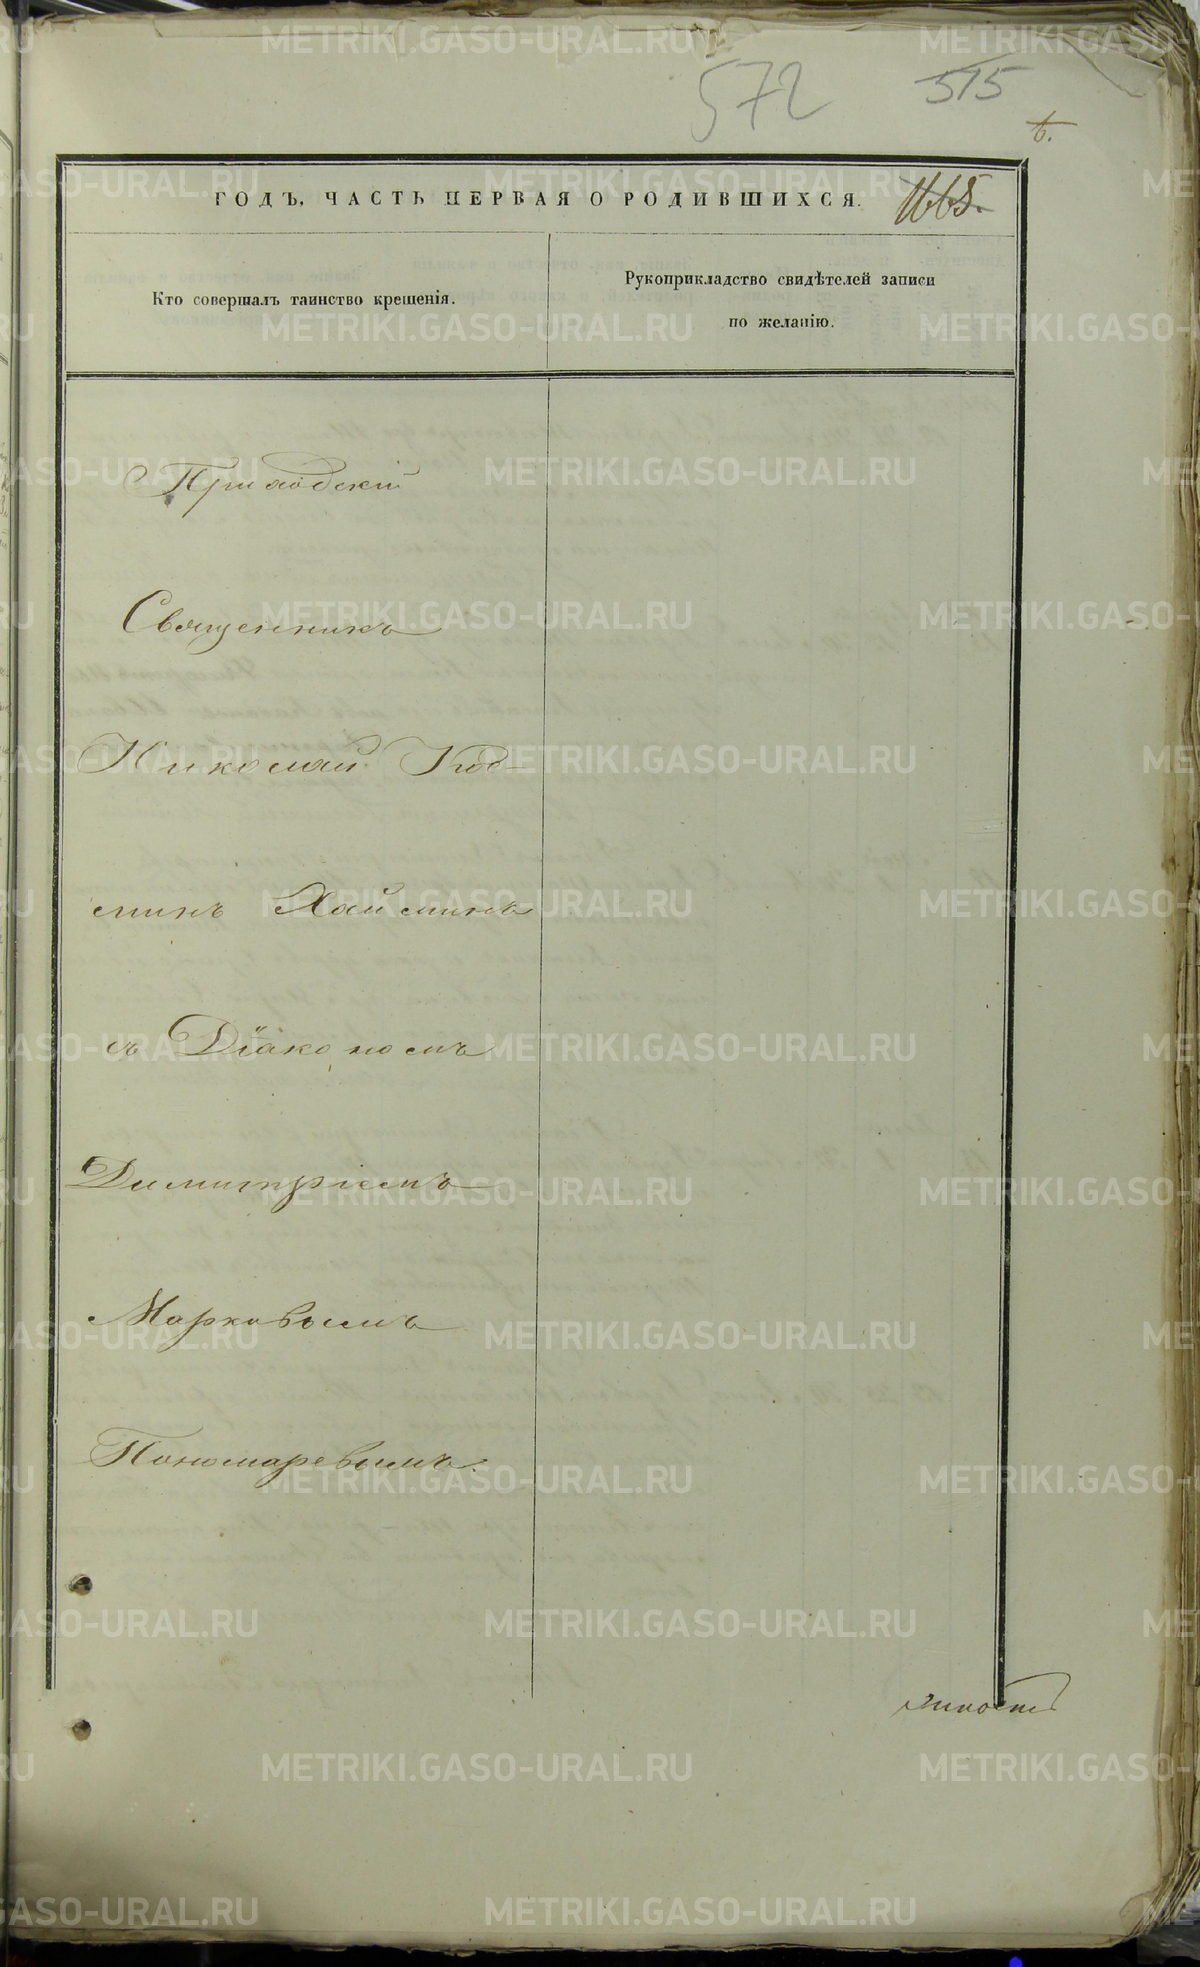 572 515
6.
ГОДЪ, ЧАСТЬ ПЕРВАЯ О РОДИВШИХСЯ.
Кто совершалъ таинство крещенія.
Рукоприкладство свидѣтелей записи
по желанію.
Приходскій
Священникъ
Николай
минъ
съ Діакономъ
Димитріемъ
Марковымъ
Пономаревымъ.
METRIKI.GASO-URAL.RU